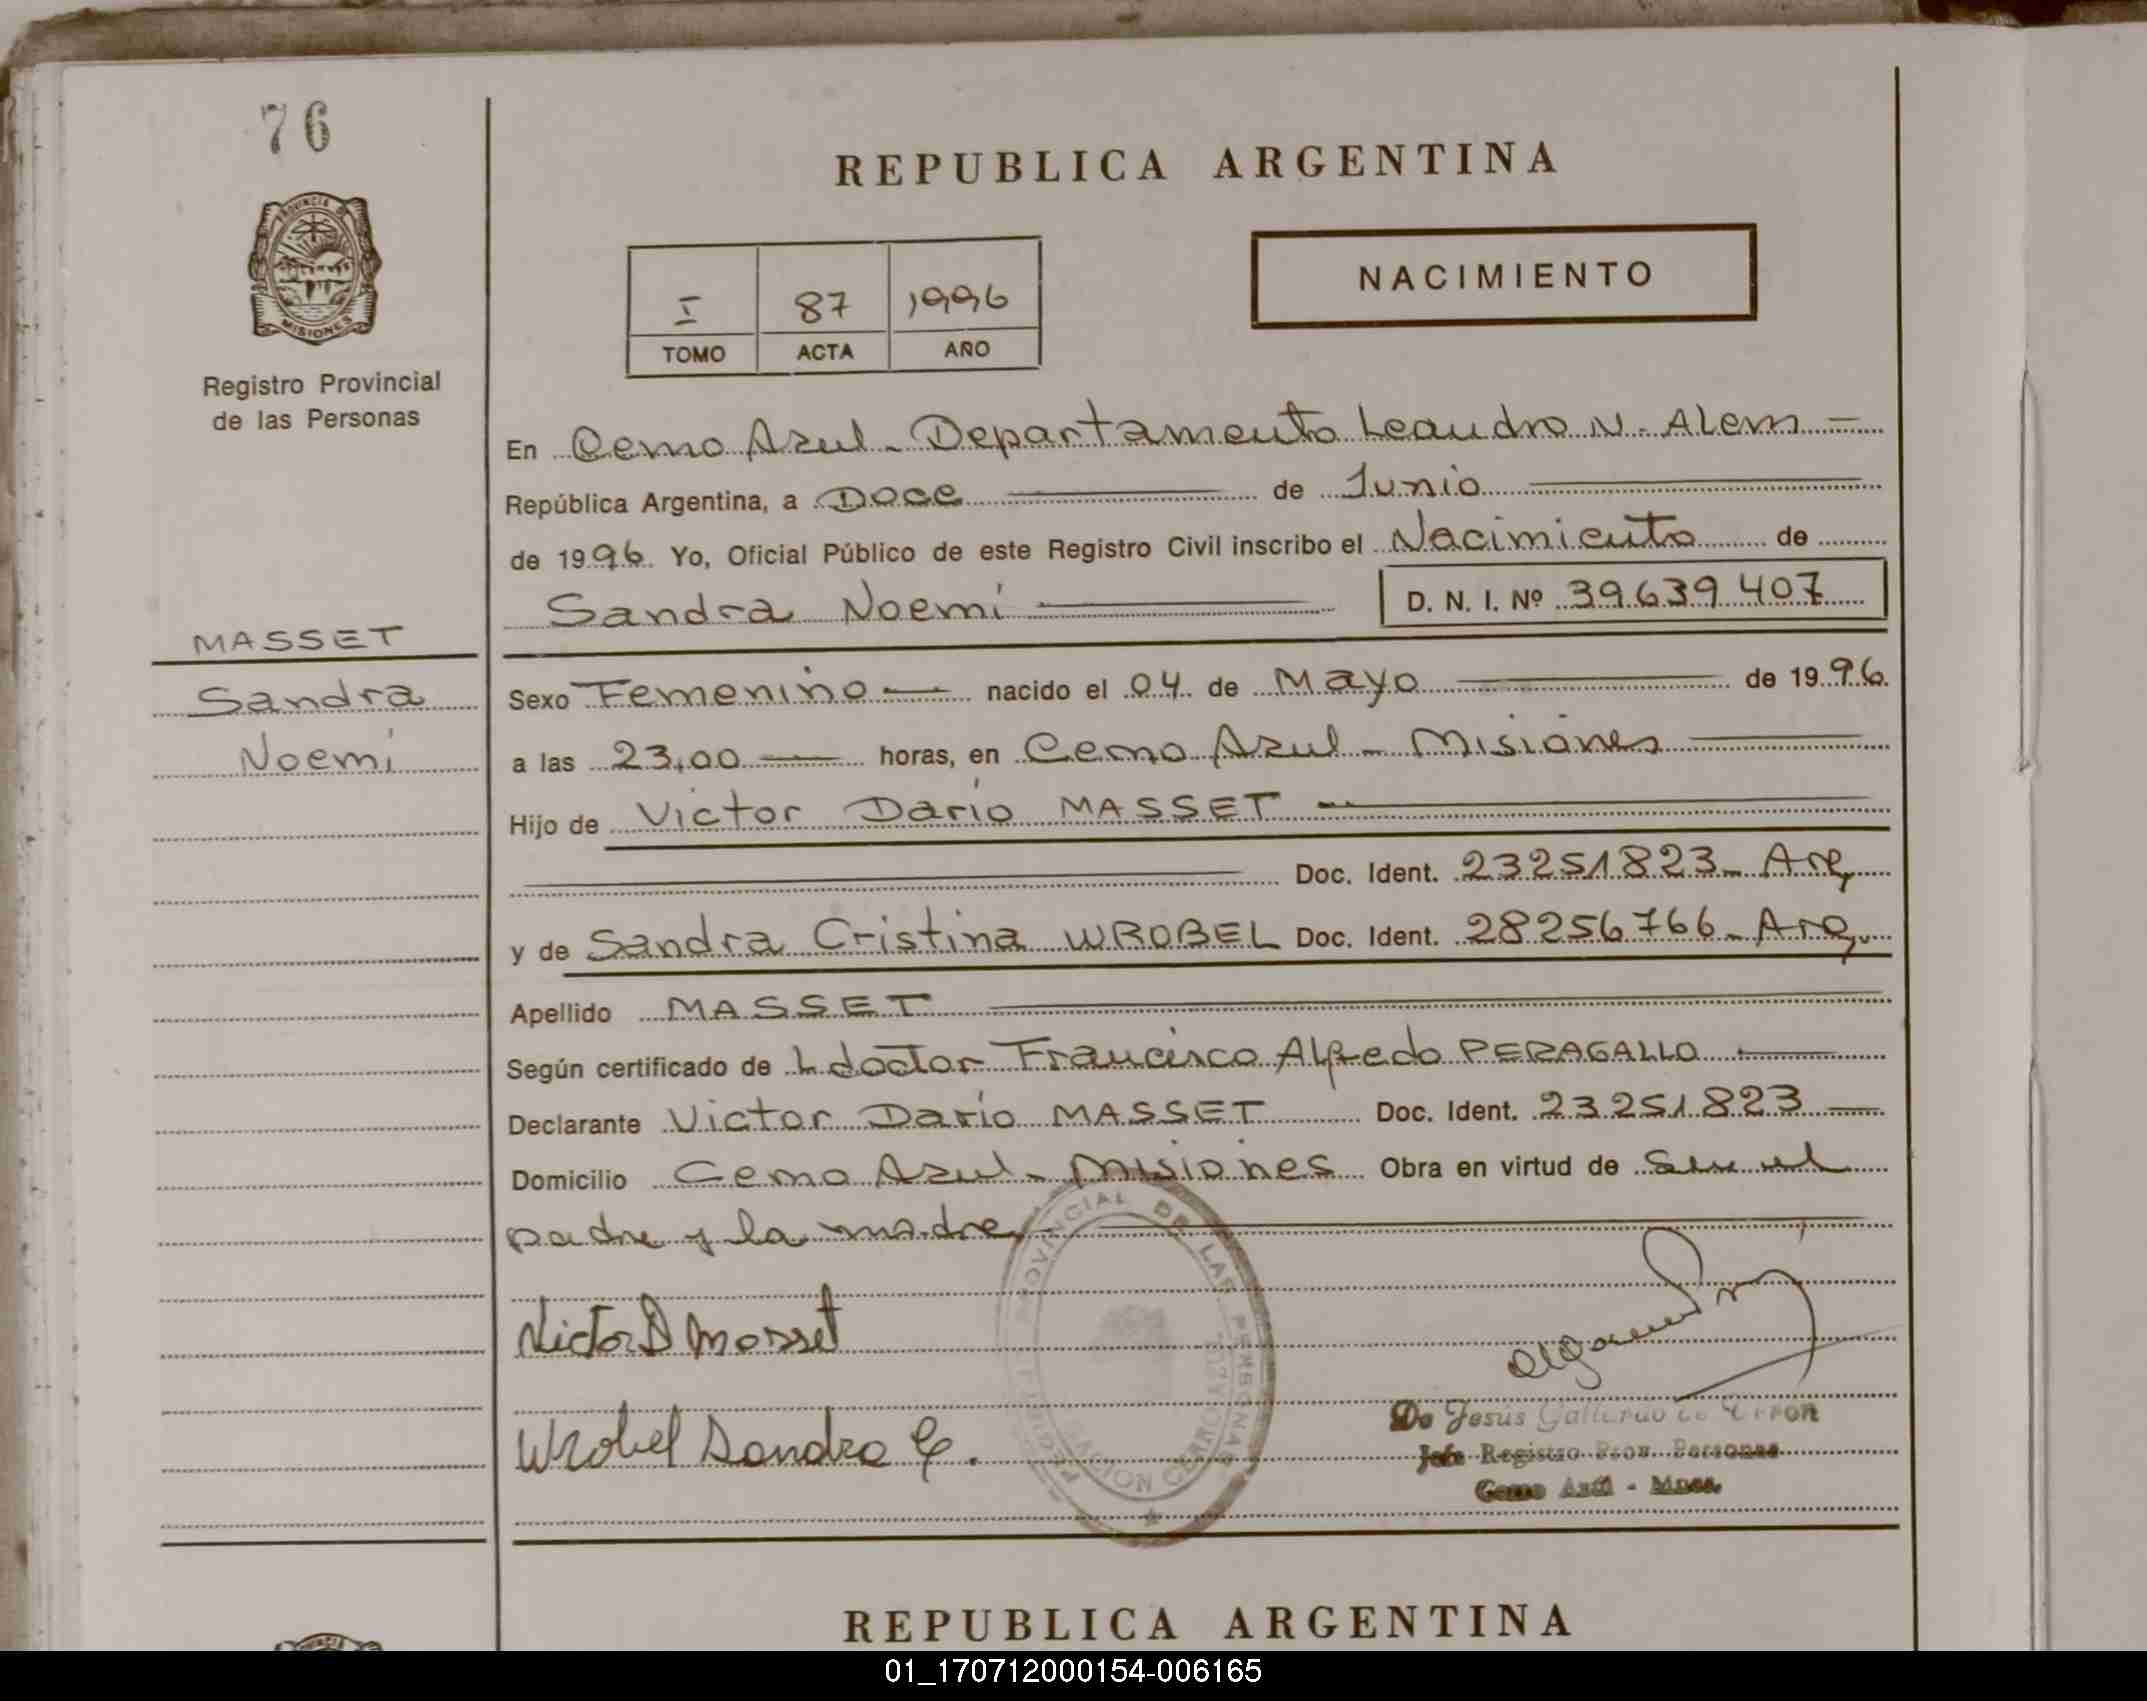 76
PROVINCIA DE
MISIONES
Registro Provincial
de las Personas
REPUBLICA ARGENTINA
NACIMIENTO
I 87 1996
TOMO ACTA AÑO
En Cerro Azul - Departamento Leandro N. Alem -
República Argentina, a Doce de Junio
de 1996. Yo, Oficial Público de este Registro Civil inscribo el Nacimiento de
Sandra Noemí D. N. I. Nº 39639407
MASSET
Sandra
Noemí
Sexo Femenino nacido el 04 de Mayo de 1996.
a las 23,00 horas, en Cerro Azul - Misiones
Hijo de Victor Darío MASSET
Doc. Ident. 23251823- Arg.
y de Sandra Cristina WROBEL Doc. Ident. 28256766- Arg.
Apellido MASSET
Según certificado de L doctor Francisco Alfredo PERAGALLO
Declarante Victor Darío MASSET Doc. Ident. 23251823
Domicilio Cerro Azul - Misiones Obra en virtud de Ser el
padre y la madre
Victor D Masset
Wrobel Sandra C.
PROVINCIAL DE LAS PERSONAS
Jesús Gallardo de
Jefe Registro Prov. Personas
Cerro Azul - Mnes.
REPUBLICA ARGENTINA
01_170712000154-006165